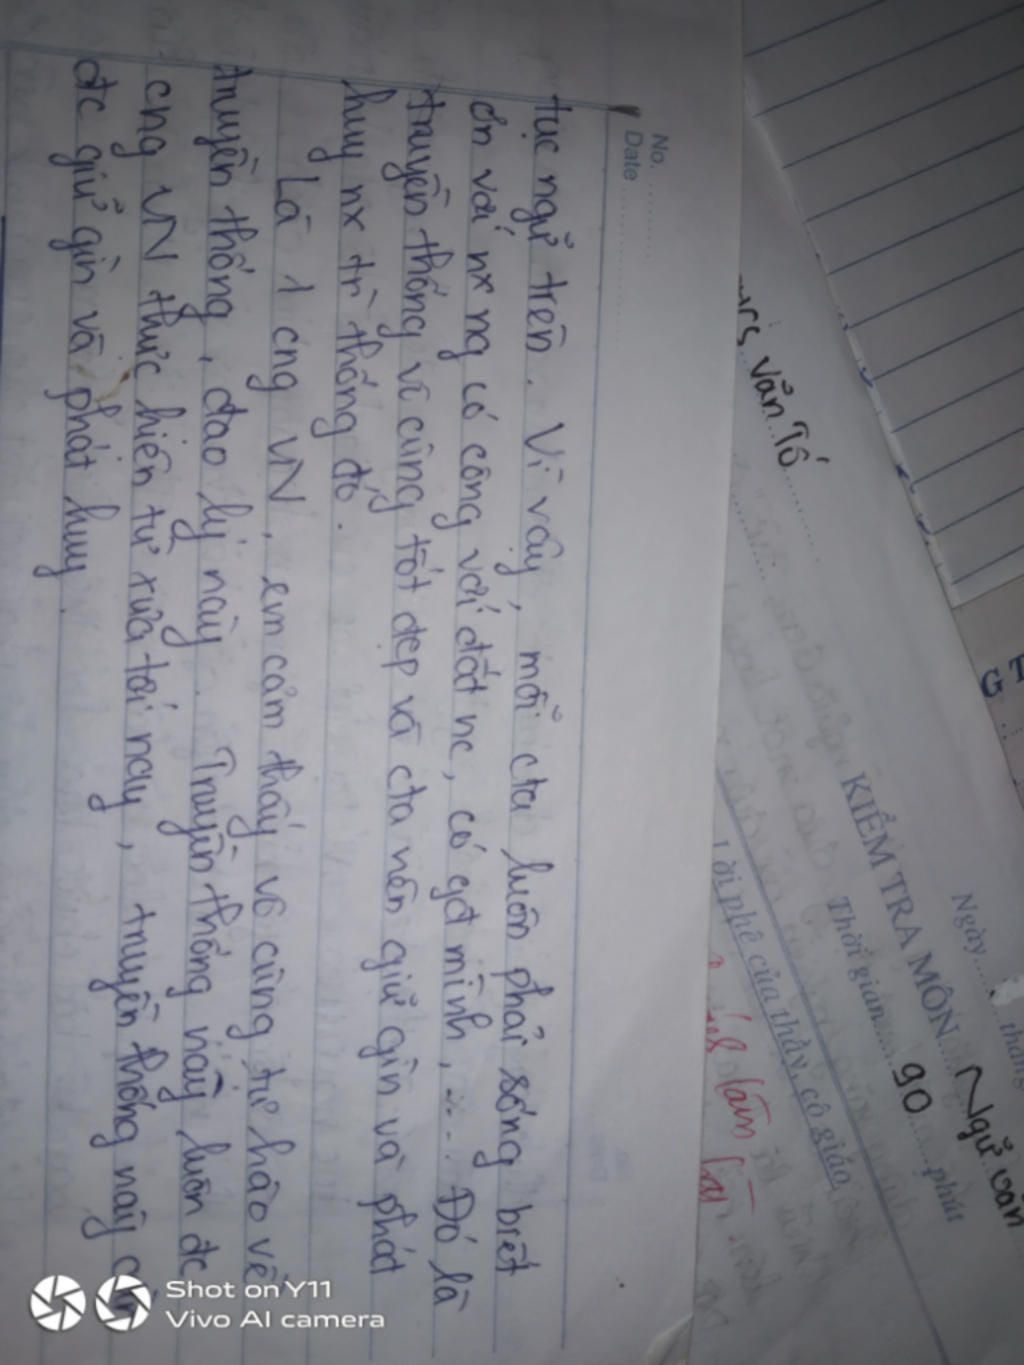 No. ............
Date ............
tục ngữ trên. Vì vậy, mỗi cta luôn phải sống biết
ơn với nx ng có công với đất nc, có gđ mình, ... Đó là
truyền thống vô cùng tốt đẹp và cta nên giữ gìn và phát
huy nx tr` thống đó.
Là 1 cng VN, em cảm thấy vô cùng tự hào về
truyền thống, đạo lý này. Truyền thống này luôn đc
cng VN thực hiện từ xưa tới nay, truyền thống này
đc giữ gìn và phát huy.
Văn Tố
Ngày...... tháng
KIỂM TRA MÔN...... Ngữ văn
Thời gian...... 90 ...... phút
Lời phê của thầy, cô giáo
G T
Shot on Y11
Vivo AI camera